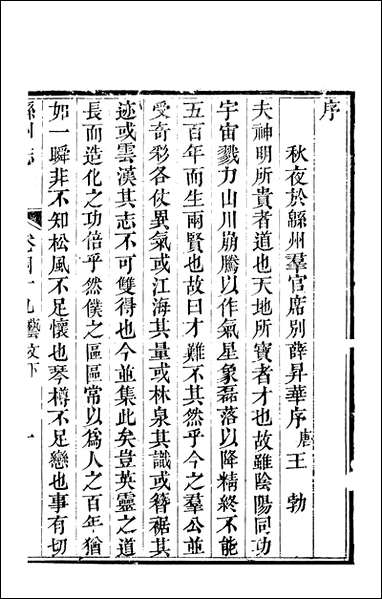 序
秋夜於緜州羣官席別薛昇華序 唐 王勃
夫神明所貴者道也天地所寶者才也故雖陰陽同功
宇宙戮力山川崩騰以作氣星象磊落以降精終不能
五百年而生兩賢也故曰才難不其然乎今之羣公並
受奇彩各仗異氣或江海其量或林泉其識或簪裾其
迹或雲漢其志不可雙得也今並集此矣豈英靈之道
長而造化之功倍乎然僕之區區常以爲人之百年猶
如一瞬非不知松風不足懷也琴樽不足戀也事有切
卷四十九藝文下 一